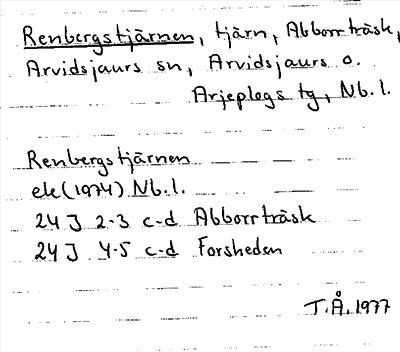 Renbergstjärnen, tjärn, Abborrträsk,
Arvidsjaurs sn, Arvidsjaurs o.
Arjeplogs tg, Nb.l.
Renbergstjärnen
ek (1974) Nb.l.
24 J 2-3 c-d Abborrträsk
24 J 4-5 c-d Forsheden
T.Å. 1977